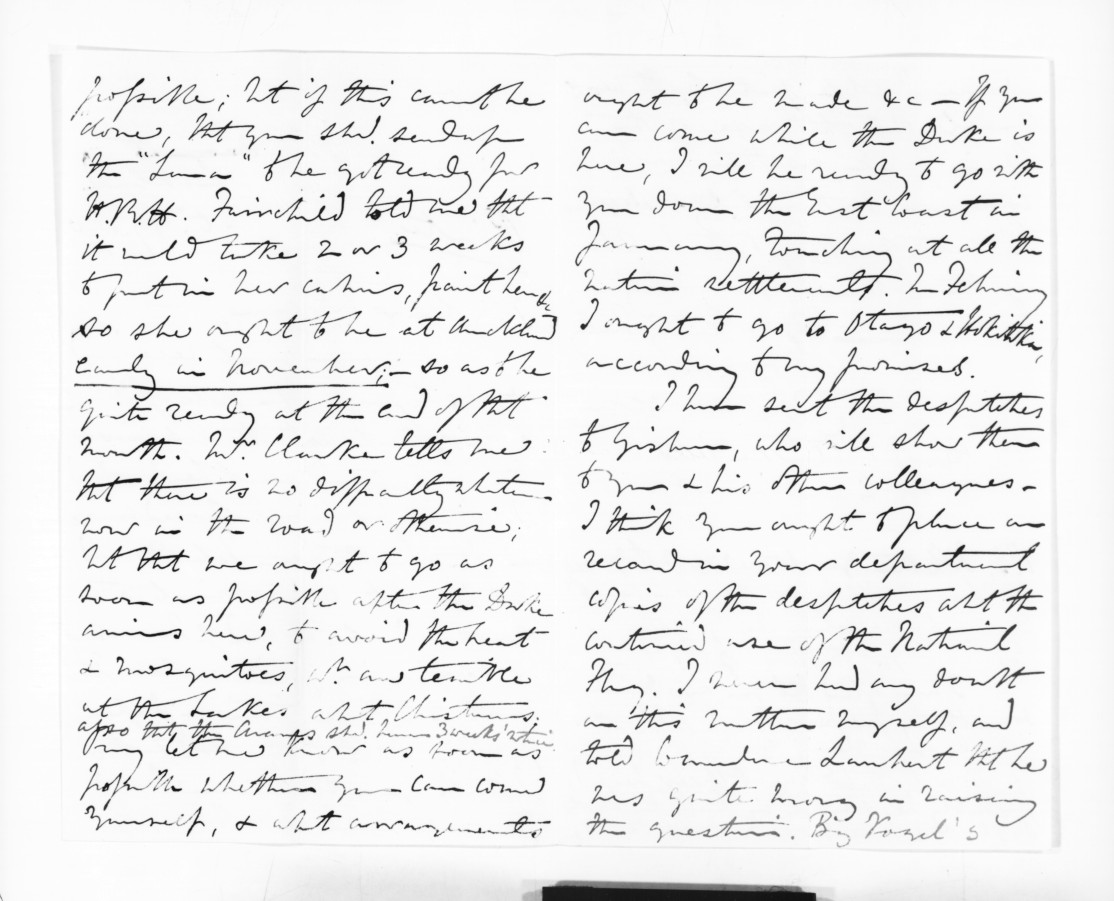 possible; but if this cannot be
done, that you shd. send up
the "Luna" to be got ready for
H.R.H. Fairchild told me that
it wuld take 2 or 3 weeks
to put in her cabins, paint her &c
so she ought to be at Auckland
early in November; – so as to be
quite ready at the end of that
month. Mr. Clarke tells me
that there is no difficulty whatever
now in the road or otherwise;
but that we ought to go as
soon as possible after the Duke
arrives here, to avoid the heat
& mosquitoes, wh. are terrible
at the Lakes abt Christmas,
also that the Arawas shd. have 3 weeks' notice.
Pray let me know as soon as
possible whether you can come
yourself, & what arrangements
ought to be made &c – If you
can come while the Duke is
here, I will be ready to go with
you down the East Coast in
January, touching at all the
native settlements. In February
I ought to go to Otago & Hokitika,
according to my promises.
I have sent the despatches
to Gisborne, who will show them
to you & his other colleagues –
I think you ought to place on
record in your department
copies of the despatches abt the
continued use of the National
Flag. I never had any doubt
on this matter myself, and
told Commodore Lambert that he
was quite wrong in raising
the question. By Vogel's